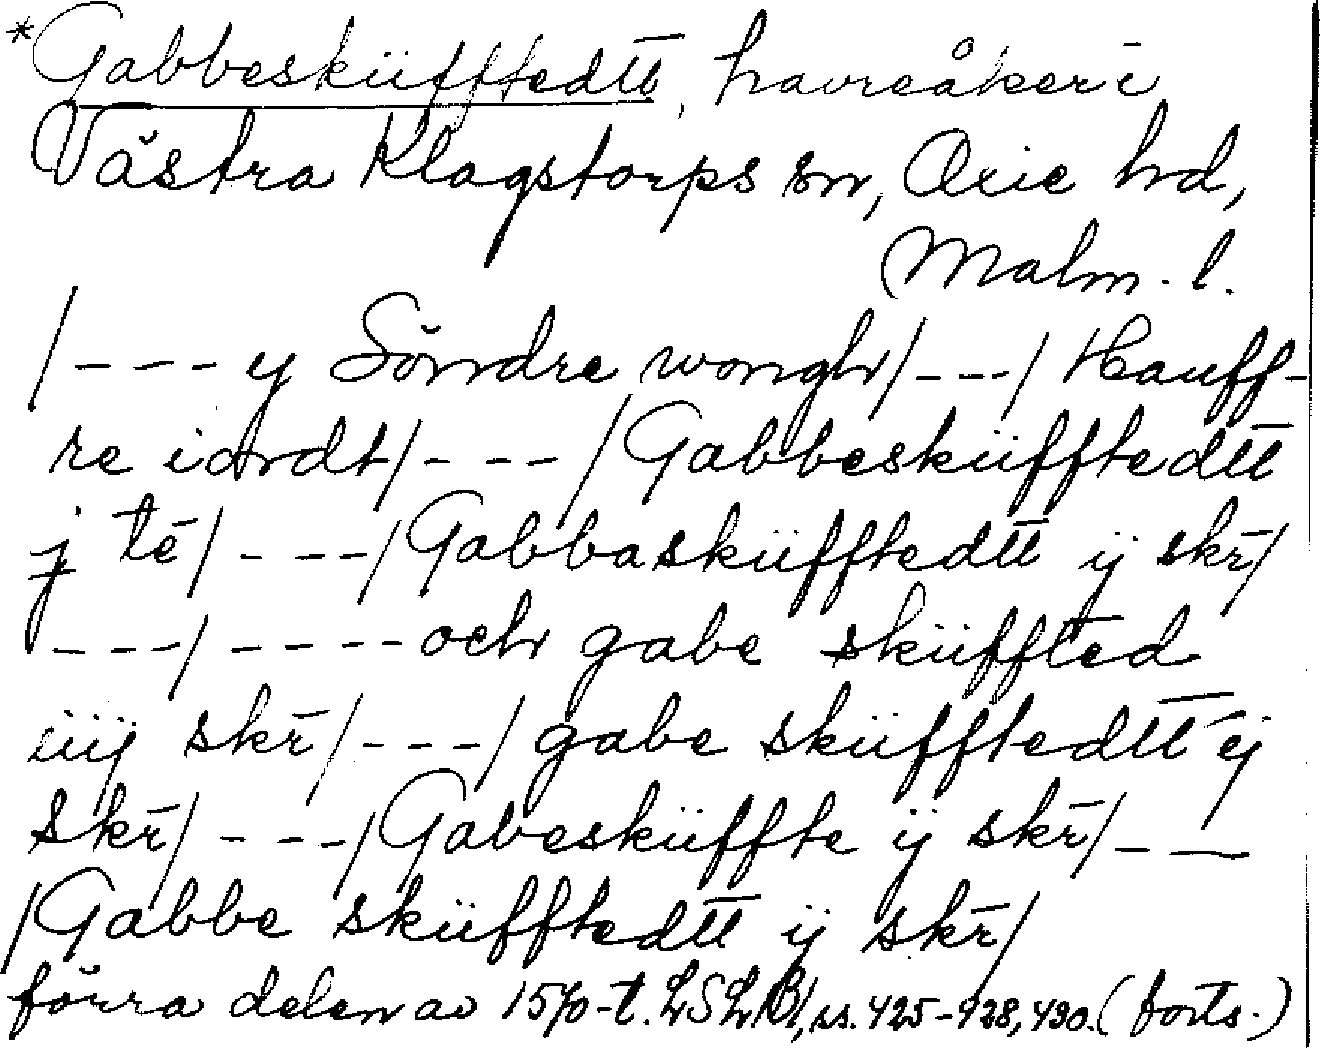 *Gabbesküfftedtt, havreåker i
Västra Klagstorps sn, Oxie hd,
Malm. l.
/--- y Söndre wongh/---/ Hauff-
re iordt/---/Gabbesküfftedtt
j te/---/Gabbasküfftedtt ij skr/
---/----och gabe sküffted
iiij skr/---/gabe sküfftedtt ij
skr/---/Gabesküffte ij skr/---
/Gabbe sküfftedtt ij skr/
förra delen av 1570-t. LSLB1, ss. 425-428, 430. (forts.)